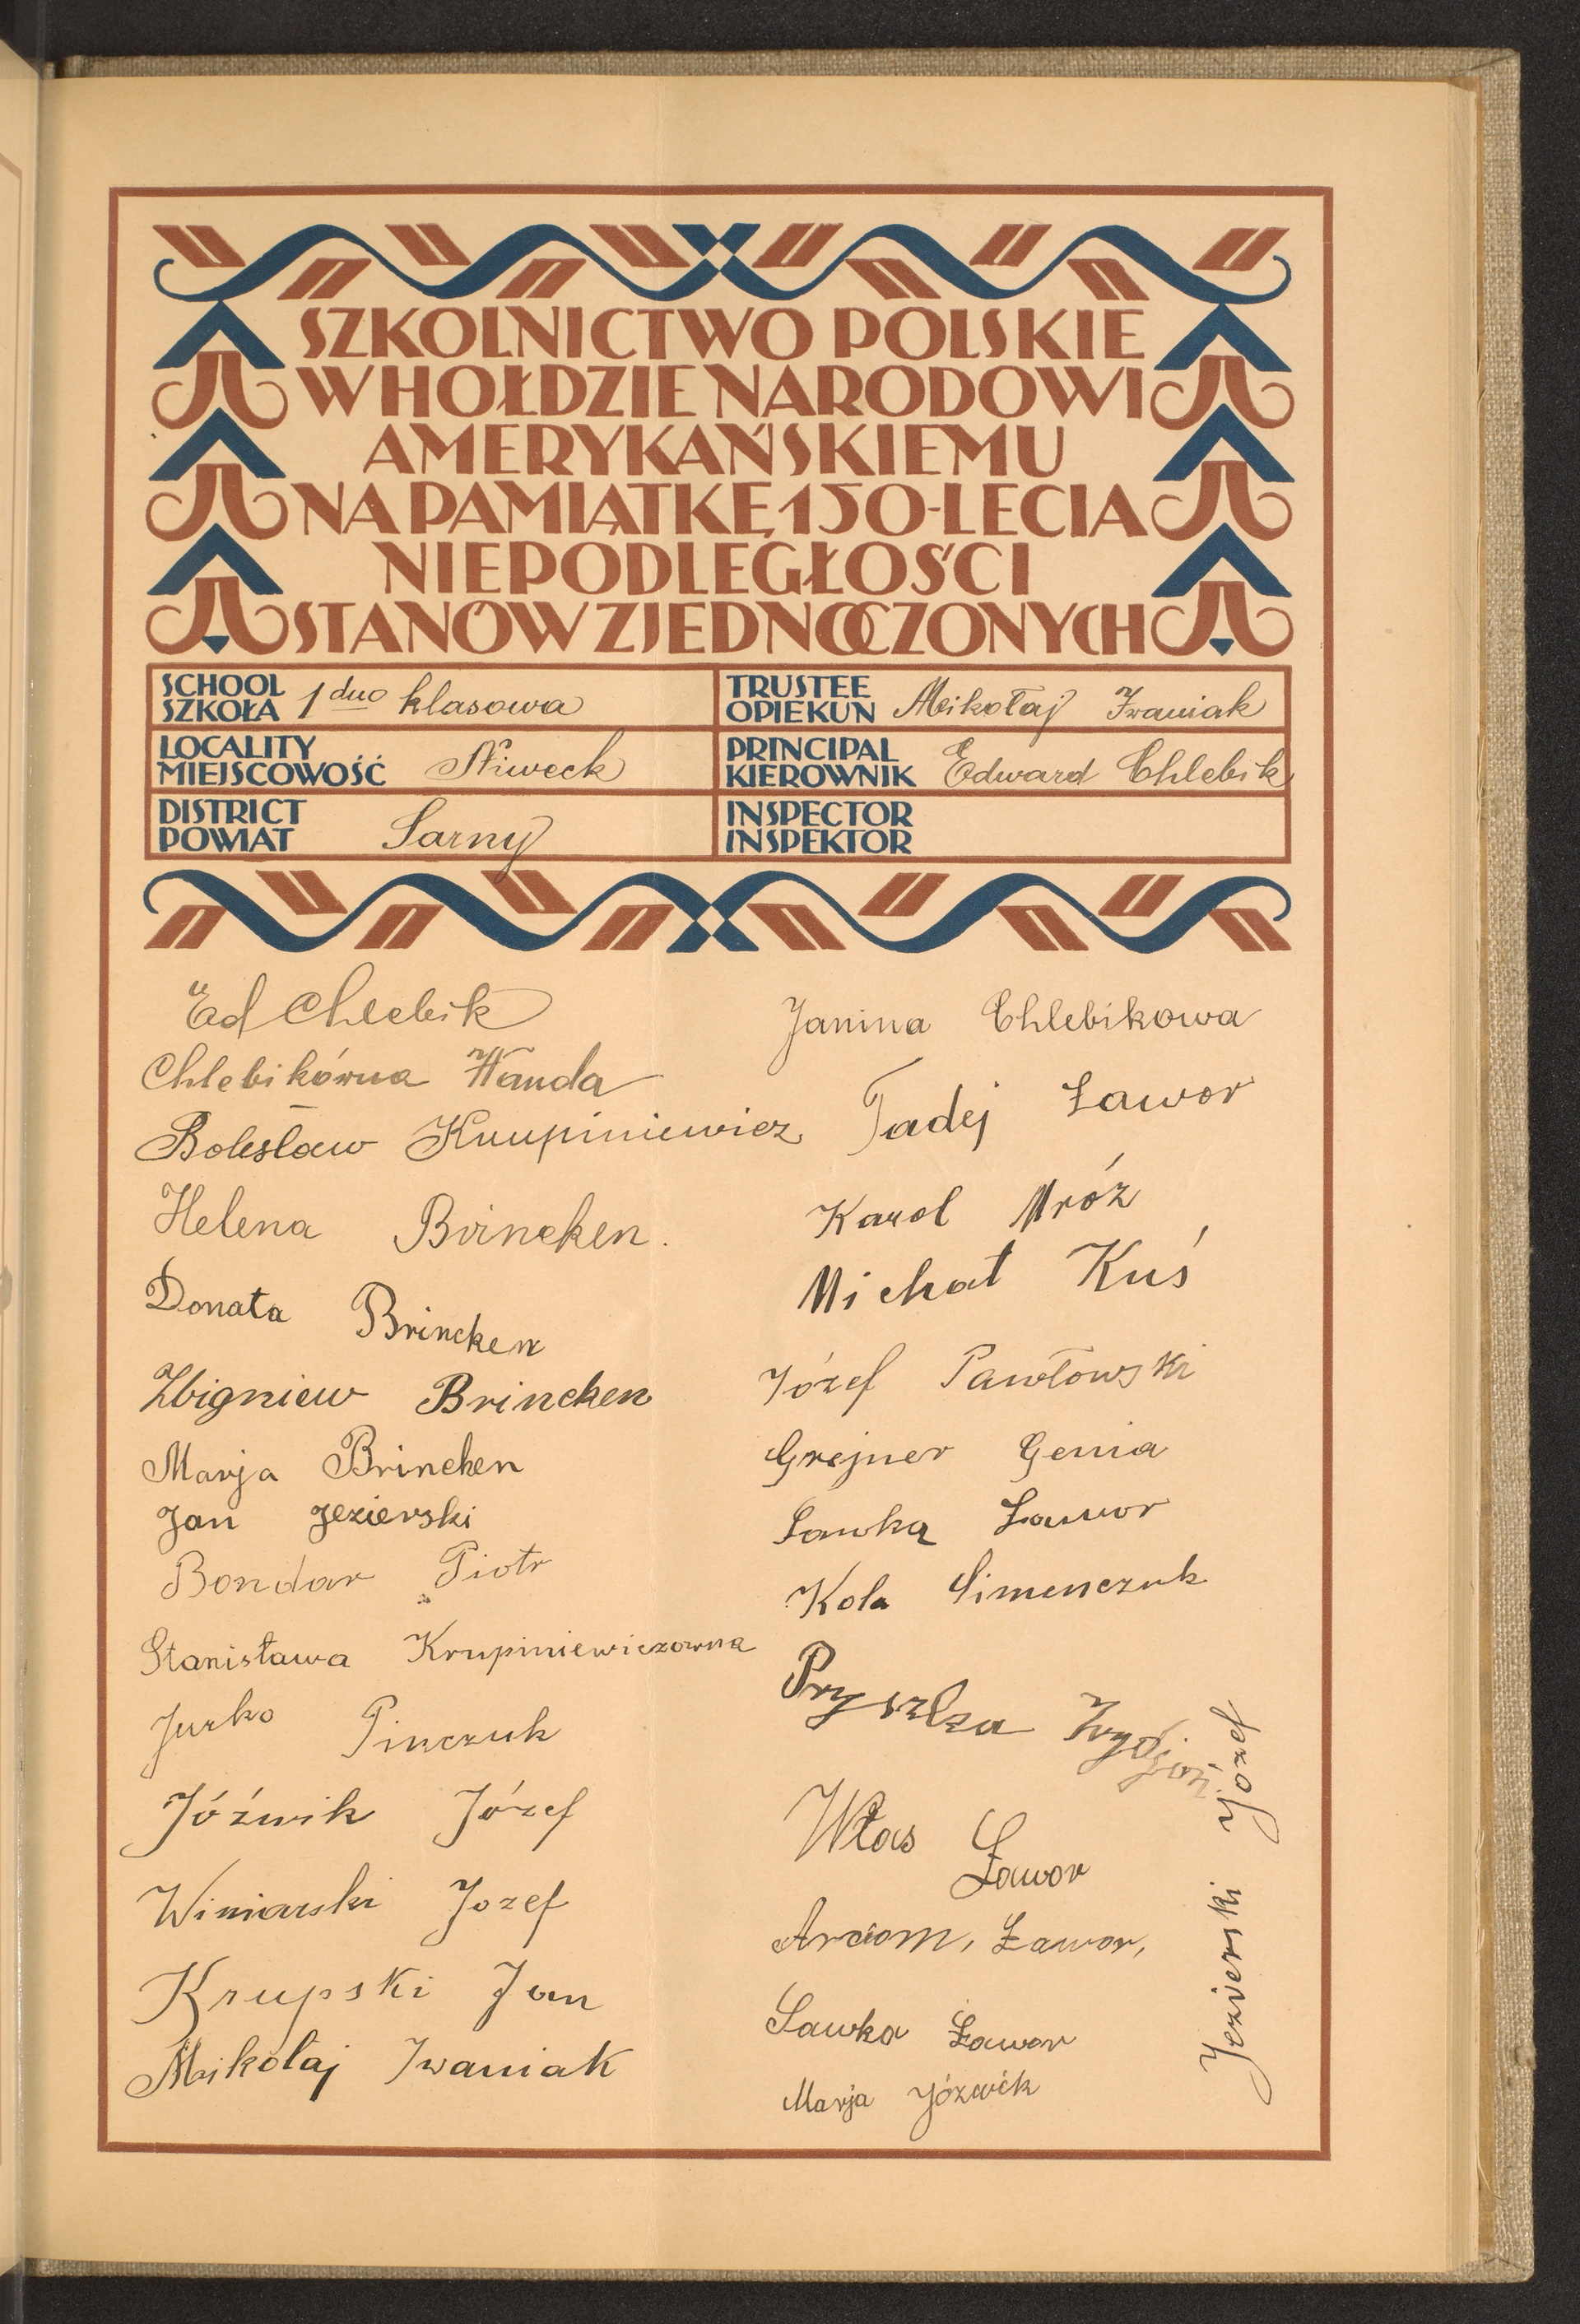 SZKOLNICTWO POLSKIE
W HOŁDZIE NARODOWI
AMERYKAŃSKIEMU
NA PAMIĄTKĘ 150-LECIA
NIEPODLEGŁOŚCI
STANÓW ZJEDNOCZONYCH
SCHOOL
SZKOŁA 1 duo klasowa
TRUSTEE
OPIEKUN Mikołaj Iwaniak
LOCALITY
MIEJSCOWOŚĆ Niweck
PRINCIPAL
KIEROWNIK Edward Chlebik
DISTRICT
POWIAT Sarny
INSPECTOR
INSPEKTOR
Ed Chlebik
Chlebikówna Wanda
Bolesław Krupiniewicz
Helena Brincken.
Donata Brincken
Zbigniew Brincken
Marja Brincken
Jan Jezierski
Bondar Piotr
Stanisława Krupiniewiczowna
Jurko Pinczuk
Jóźwik Józef
Winiarski Jozef
Krupski Jan
Mikołaj Iwaniak
Janina Chlebikowa
Tadej Ławor
Karol Mróz
Michał Kuś
Józef Pawłowski
Grejner Genia
Sawka Ławor
Kola Simenczuk
Pryszlza
Włas Ławor
Arciom, Ławor,
Sawka Ławor
Marja Józwik
Jezierski Józef